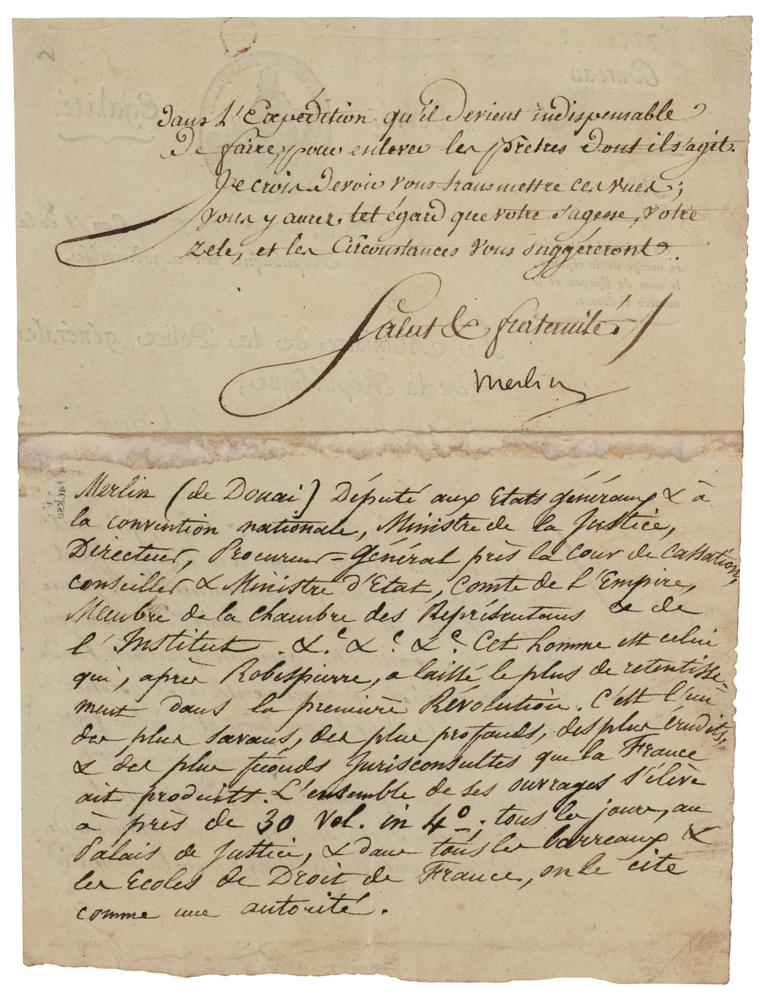 dans l'Expédition qu'il devient indispensable
De faire, pour enlever les prêtres dont il s'agit.
Je crois devoir vous transmettre ces vues;
vous y aurez, tel égard que votre sagesse, votre
zele, et les Circonstances vous suggéreront.
Salut & fraternité /
Merlin
Merlin (de Douai) Député aux Etats généraux & à
la convention nationale, Ministre de la Justice,
Directeur, Procureur-Général près la Cour de Cassation,
conseiller & Ministre d'Etat, Comte de l'Empire,
Membre de la chambre des Représentans & de
l'Institut. &c &c &c. Cet homme est celui
qui, après Robespierre, a laissé le plus de retentisse-
ment dans la première Révolution. C'est l'un
des plus savans, des plus profonds, des plus érudits,
& des plus féconds Jurisconsultes que la France
ait produits. L'ensemble de ses ouvrages s'élève
à près de 30 vol. in 4º; tous les jours, au
Palais de Justice, & dans tous les barreaux &
les Ecoles de Droit de France, on le cite
comme une autorité.